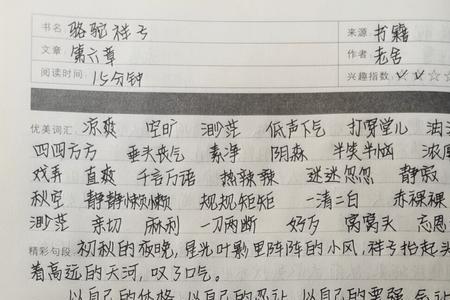 书名 骆驼祥子 来源 书籍
文章 第六章 作者 老舍
阅读时间 15分钟 兴趣指数
优美词汇 凉爽 空旷 渺茫 低声下气 打穿堂儿
四四方方 垂头丧气 素净 阴森 半笑半恼
戏弄 直爽 千言万语 热辣辣 迷迷忽忽 静寂
秋空 静静懒懒 规规矩矩 一清二白 赤裸裸
渺茫 亲切 麻利 一刀两断 好歹 窝窝头
精彩句段 初秋的夜晚,星光叶影里阵阵的小风,祥子抬起头
看高远的天河,叹了口气。
以自己的体格,以自己的忍让,以自己的要强,会让